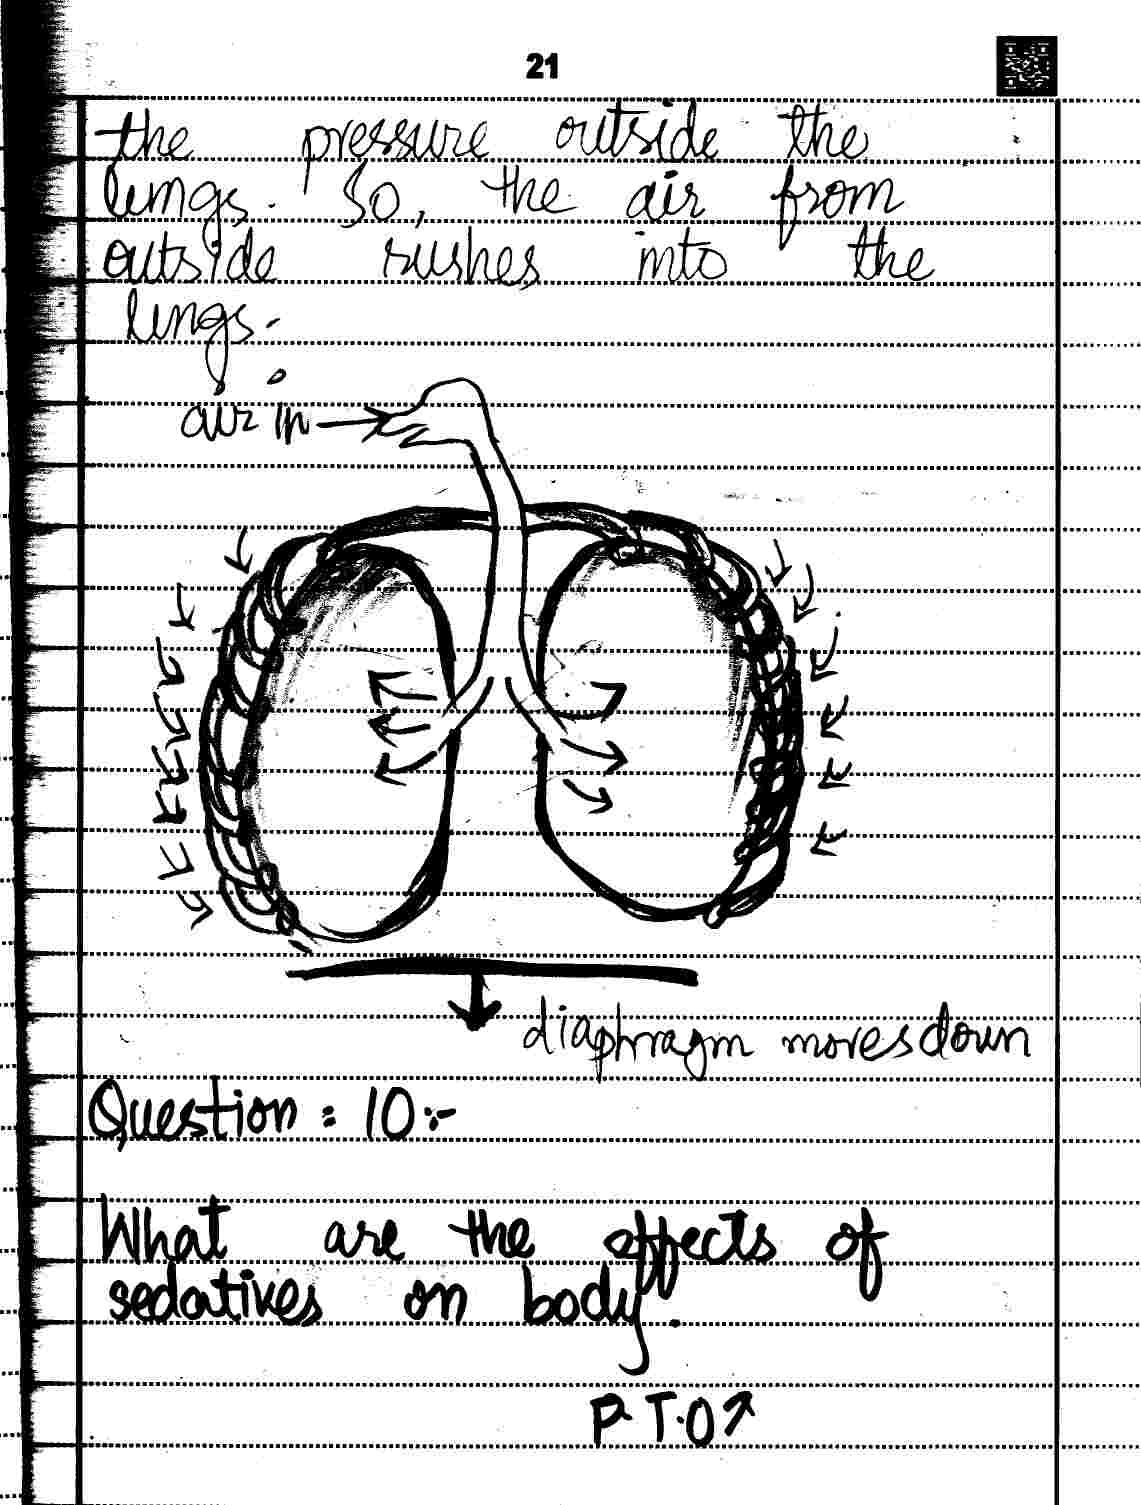 21
the pressure outside the
lungs. So, the air from
outside rushes into the
lungs.
air in
diaphragm moves down
Question : 10 :-
What are the effects of
sedatives on body.
P.T.O